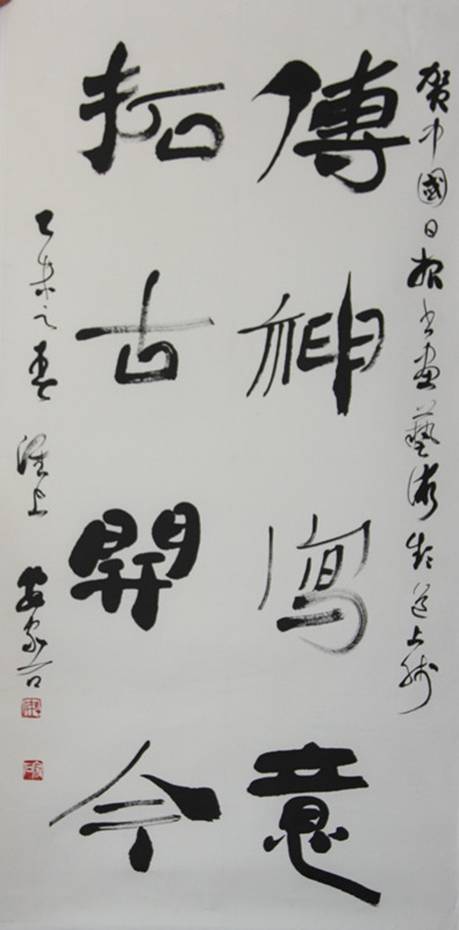 賀中國日報書畫藝術頻道上线
傳神寫意
拓古開今
乙未之春 淮上